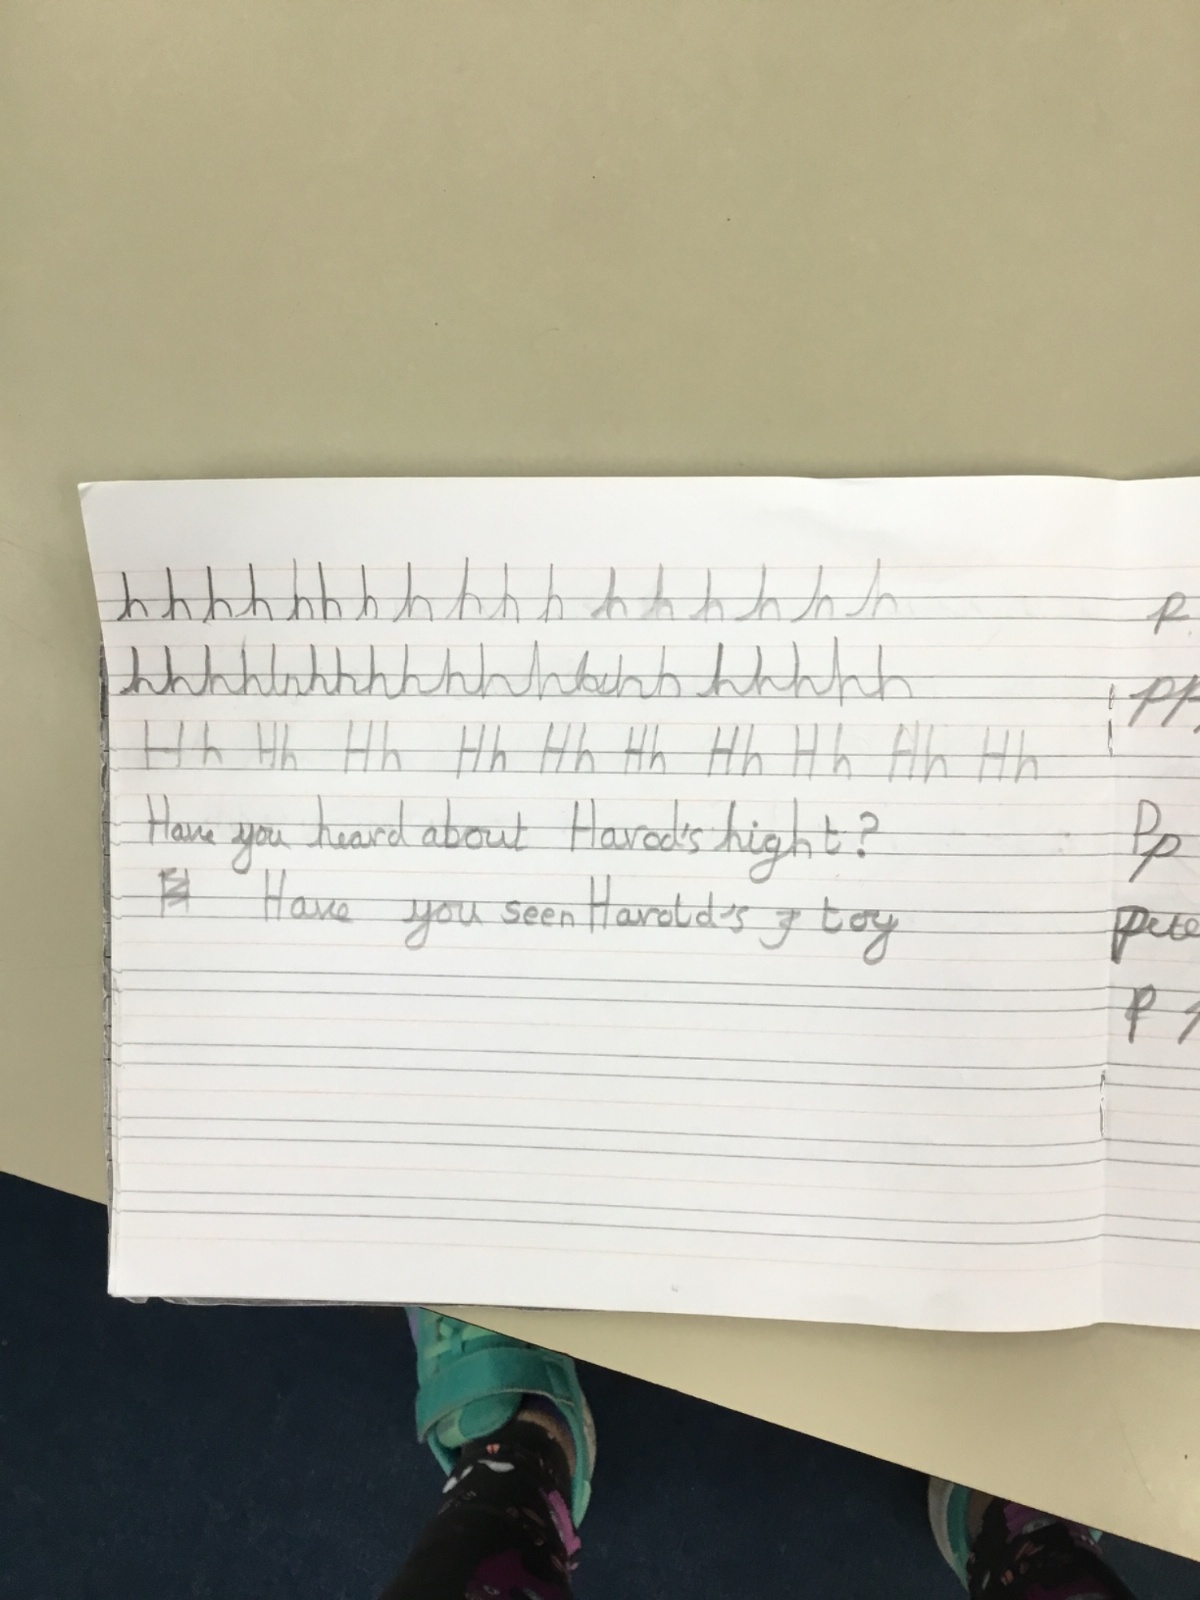 h h h h h h h h h h h h h h h h h h
hhhhhhhhhhhhhhhh hhhhh
Hh Hh Hh Hh Hh Hh Hh Hh Hh Hh
Have you heard about Harod's hight?
Have you seen Harold's toy
p
pp
Pp
Pete
P